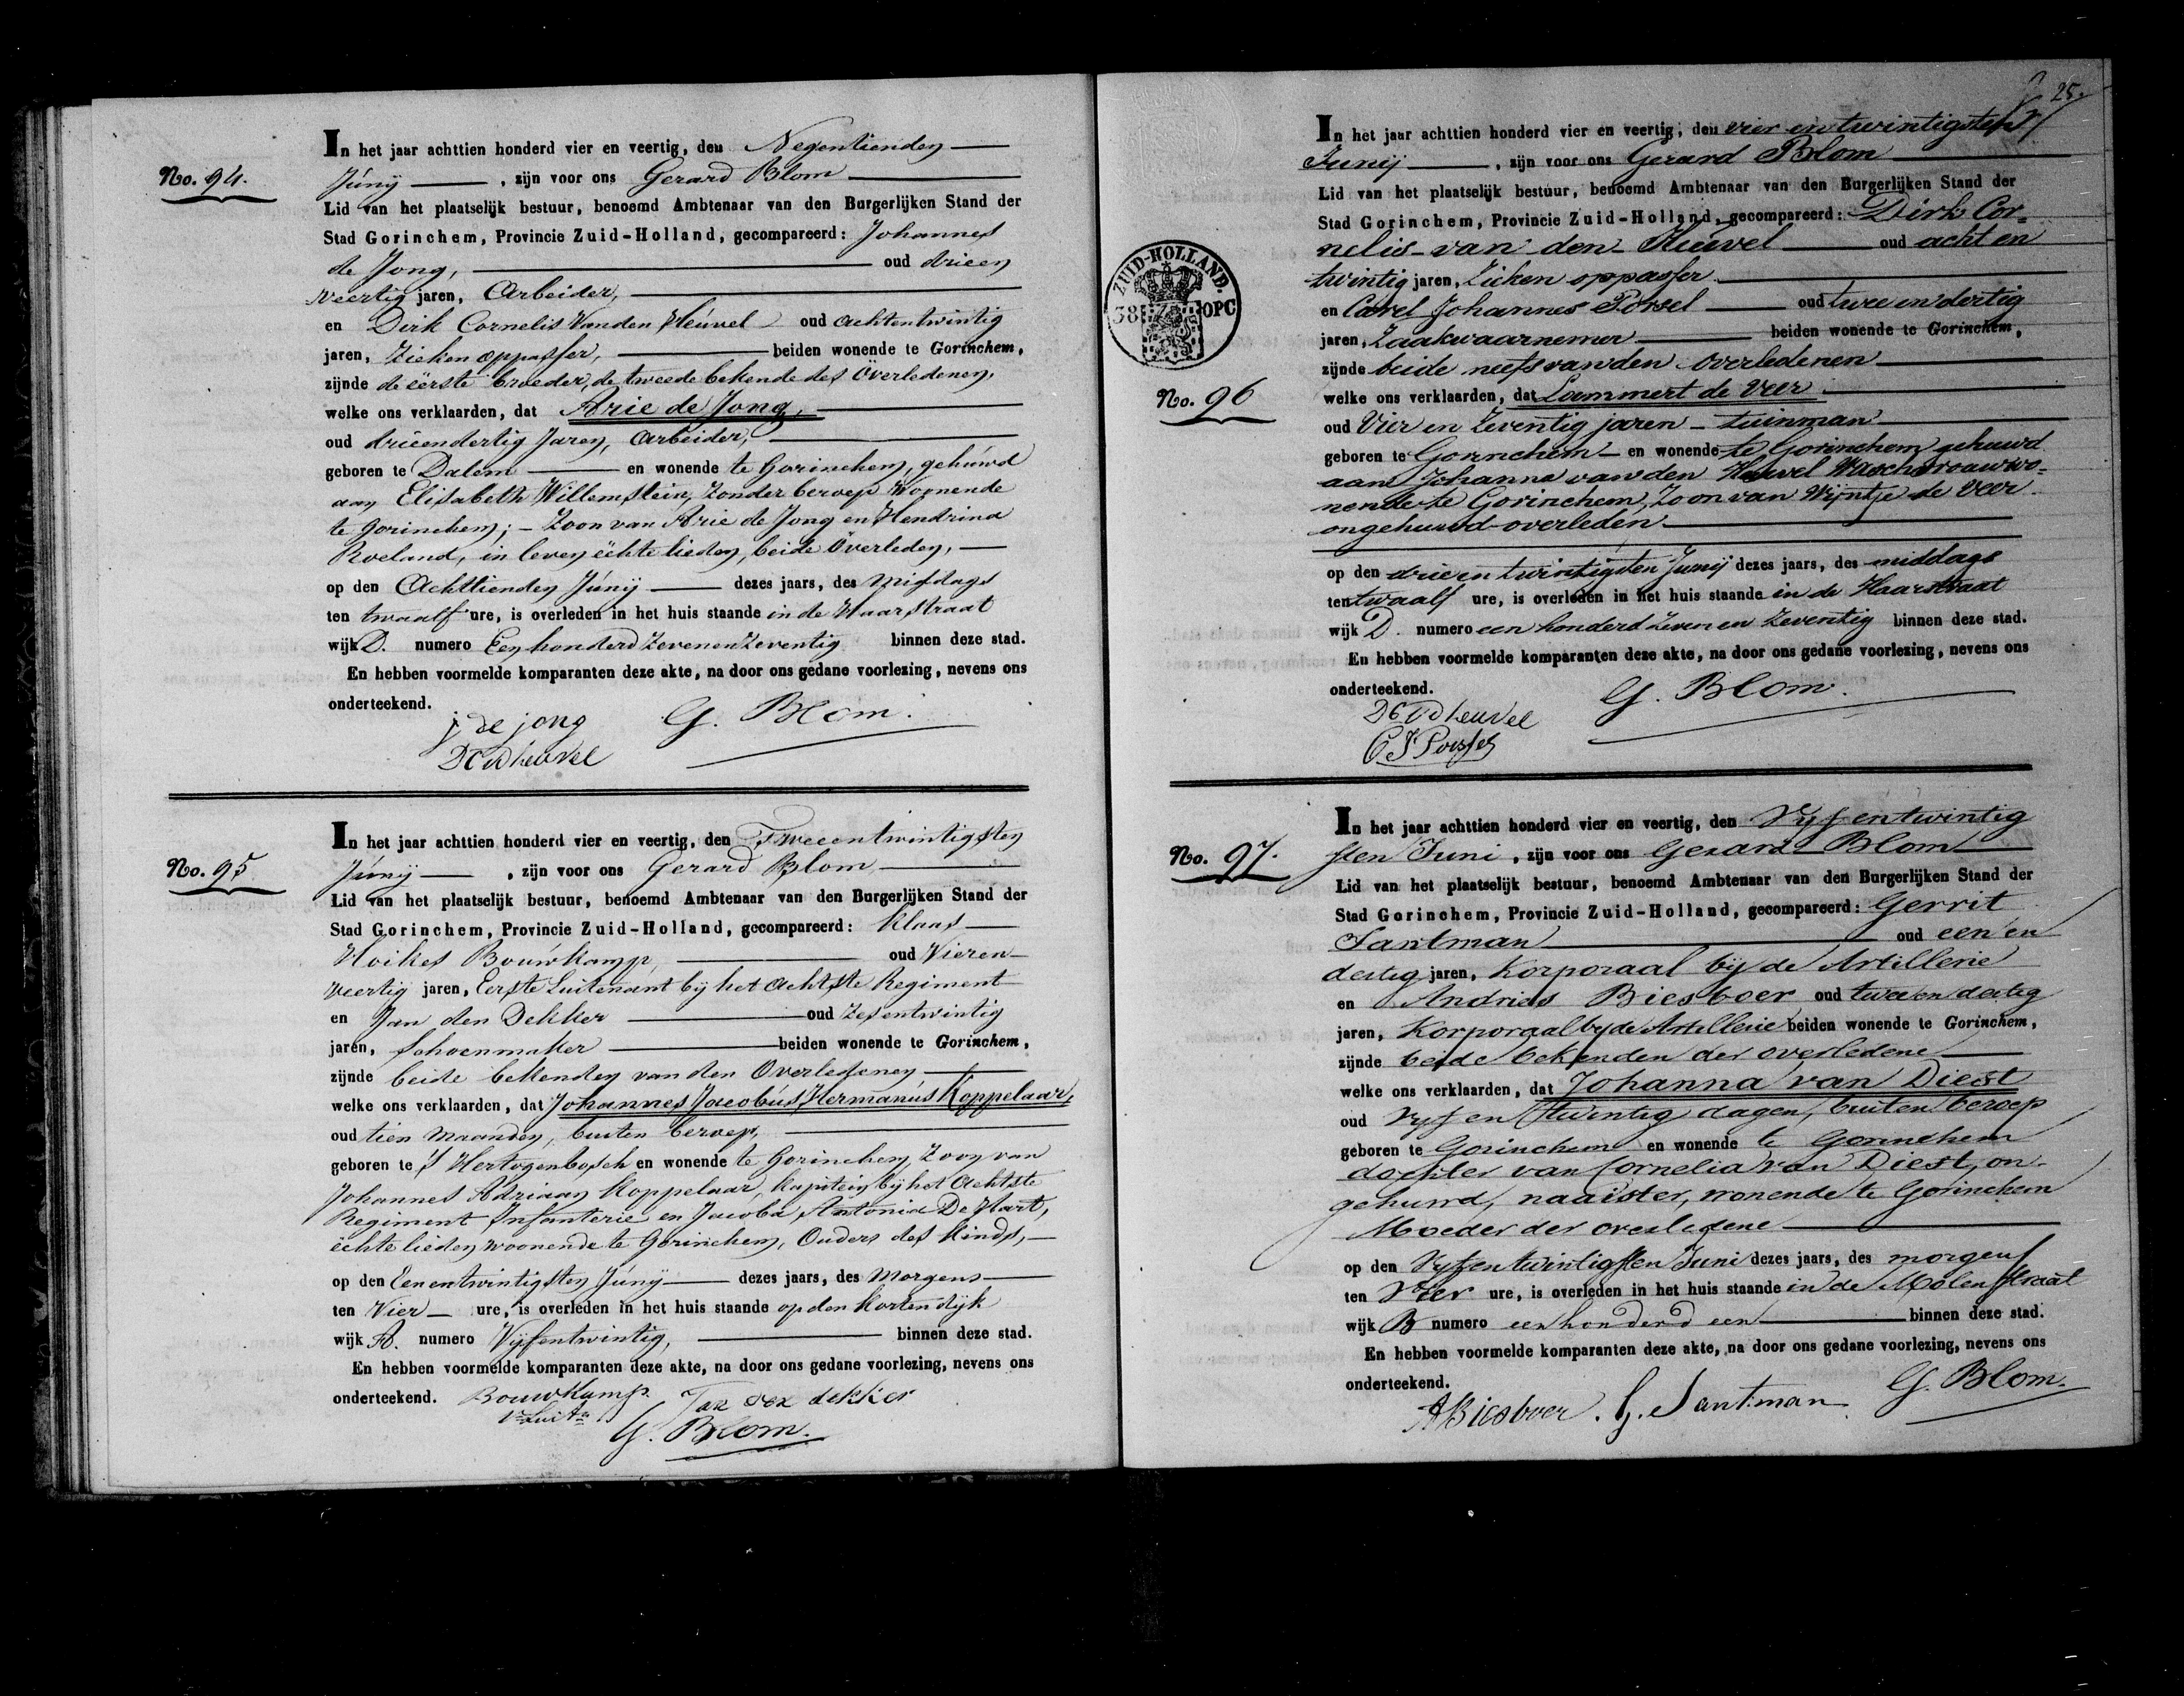 No. 94.
In het jaar achttien honderd vier en veertig, den Negentienden
Júnÿ, zijn voor ons Gerard Blom
Lid van het plaatselijk bestuur, benoemd Ambtenaar van den Burgerlijken Stand der
Stad Gorinchem, Provincie Zuid-Holland, gecompareerd: Johannes
de Jong, oud drieen
veertig jaren, Arbeider,
en Dirk Cornelis Vanden Heúvel oud achtentwintig
jaren, Ziekenoppasser, beiden wonende te Gorinchem,
zijnde de eerste broeder, de tweede bekende des Overledenen,
welke ons verklaarden, dat Arie de Jong,
oud drieendertig Jaren, Arbeider,
geboren te Dalem en wonende te Gorinchem, gehúwd
aan Elisabeth Willemstein, Zonder beroep Woonende
te Gorinchem; - Zoon van Arie de Jong en Hendrina
Roeland, in leven echte lieden, beide Overleden,
op den Achttienden Júnÿ dezes jaars, des Middags
ten twaalf ure, is overleden in het huis staande in de Haarstraat
wijk D. numero Een honderd Zevenen Zeventig binnen deze stad.
En hebben voormelde komparanten deze akte, na door ons gedane voorlezing, nevens ons
onderteekend.
j de jong G. Blom.
DCvdheuvel
No. 95
In het jaar achttien honderd vier en veertig, den Tweeentwintigsten
Júnÿ, zijn voor ons Gerard Blom,
Lid van het plaatselijk bestuur, benoemd Ambtenaar van den Burgerlijken Stand der
Stad Gorinchem, Provincie Zuid-Holland, gecompareerd: Klaas
Hoikes Boúwkamp, oud Vieren-
veertig jaren, Eerste Luitenant bÿ het achtste Regiment
en Jan den Dekker oud Zesentwintig
jaren, Schoenmaker beiden wonende te Gorinchem,
zijnde beide bekenden van den Overledenen
welke ons verklaarden, dat Johannes Jacobús Hermanús Koppelaar,
oud tien Maanden, buiten beroep,
geboren te s Hertogenbosch en wonende te Gorinchem, Zoon van
Johannes Adriaan Koppelaar, Kapitein bÿ het Achtste
Regiment Infanterie en Jacoba Antonia De Hart,
echte lieden woonende te Gorinchem, Ouders des Kinds,
op den Eenentwintigsten Júnÿ dezes jaars, des Morgens
ten Vier ure, is overleden in het huis staande op den Kortendÿk
wijk A. numero Vÿfentwintig, binnen deze stad.
En hebben voormelde komparanten deze akte, na door ons gedane voorlezing, nevens ons
onderteekend. Bouwkamp Jan den dekker
1e Luitn
G. Blom.
25.
ZUID-HOLLAND.
38 OPC
No. 96
In het jaar achttien honderd vier en veertig, den vier en twintigsten
Junij, zijn voor ons Gerard Blom
Lid van het plaatselijk bestuur, benoemd Ambtenaar van den Burgerlijken Stand der
Stad Gorinchem, Provincie Zuid-Holland, gecompareerd: Dirk Cor-
nelis van den Heuvel oud acht en
twintig jaren, Zieken oppasser
en Carel Johannes oud twee en dertig
jaren, Zaakwaarnemer beiden wonende te Gorinchem,
zijnde beide neefs van den overledenen
welke ons verklaarden, dat Lammert de Veer
oud Vier en Zeventig jaren - tuinman
geboren te Gorinchem en wonende te Gorinchem gehuwd
aan Johanna van den Heuvel Waschvrouw wo-
nende te Gorinchem, Zoon van Wijntje de Veer
ongehuwd overleden
op den drie en twintigsten Junij dezes jaars, des middags
ten twaalf ure, is overleden in het huis staande in de Haarstraat
wijk D. numero een honderd Zeven en Zeventig binnen deze stad.
En hebben voormelde komparanten deze akte, na door ons gedane voorlezing, nevens ons
onderteekend.
DCvdheuvel G. Blom.
No. 97.
In het jaar achttien honderd vier en veertig, den Vyf en twintig
sten Juni, zijn voor ons Gerard Blom
Lid van het plaatselijk bestuur, benoemd Ambtenaar van den Burgerlijken Stand der
Stad Gorinchem, Provincie Zuid-Holland, gecompareerd: Gerrit
Santman oud een en
dertig jaren, Korporaal bij de Artillerie
en Andries Biesboer oud twee en dertig
jaren, Korporaal by de Artillerie beiden wonende te Gorinchem,
zijnde beide bekenden der overledene
welke ons verklaarden, dat Johanna van Diest
oud Vyf en twintig dagen, buiten beroep
geboren te Gorinchem en wonende te Gorinchem
dochter van Cornelia van Diest, on-
gehuwd, naaister, wonende te Gorinchem
Moeder der overledene
op den Vyfentwintigsten Juni dezes jaars, des morgens
ten Vier ure, is overleden in het huis staande in de Molenstraat
wijk B numero een honderd een binnen deze stad.
En hebben voormelde komparanten deze akte, na door ons gedane voorlezing, nevens ons
onderteekend.
A Biesboer. G. Santman G. Blom.